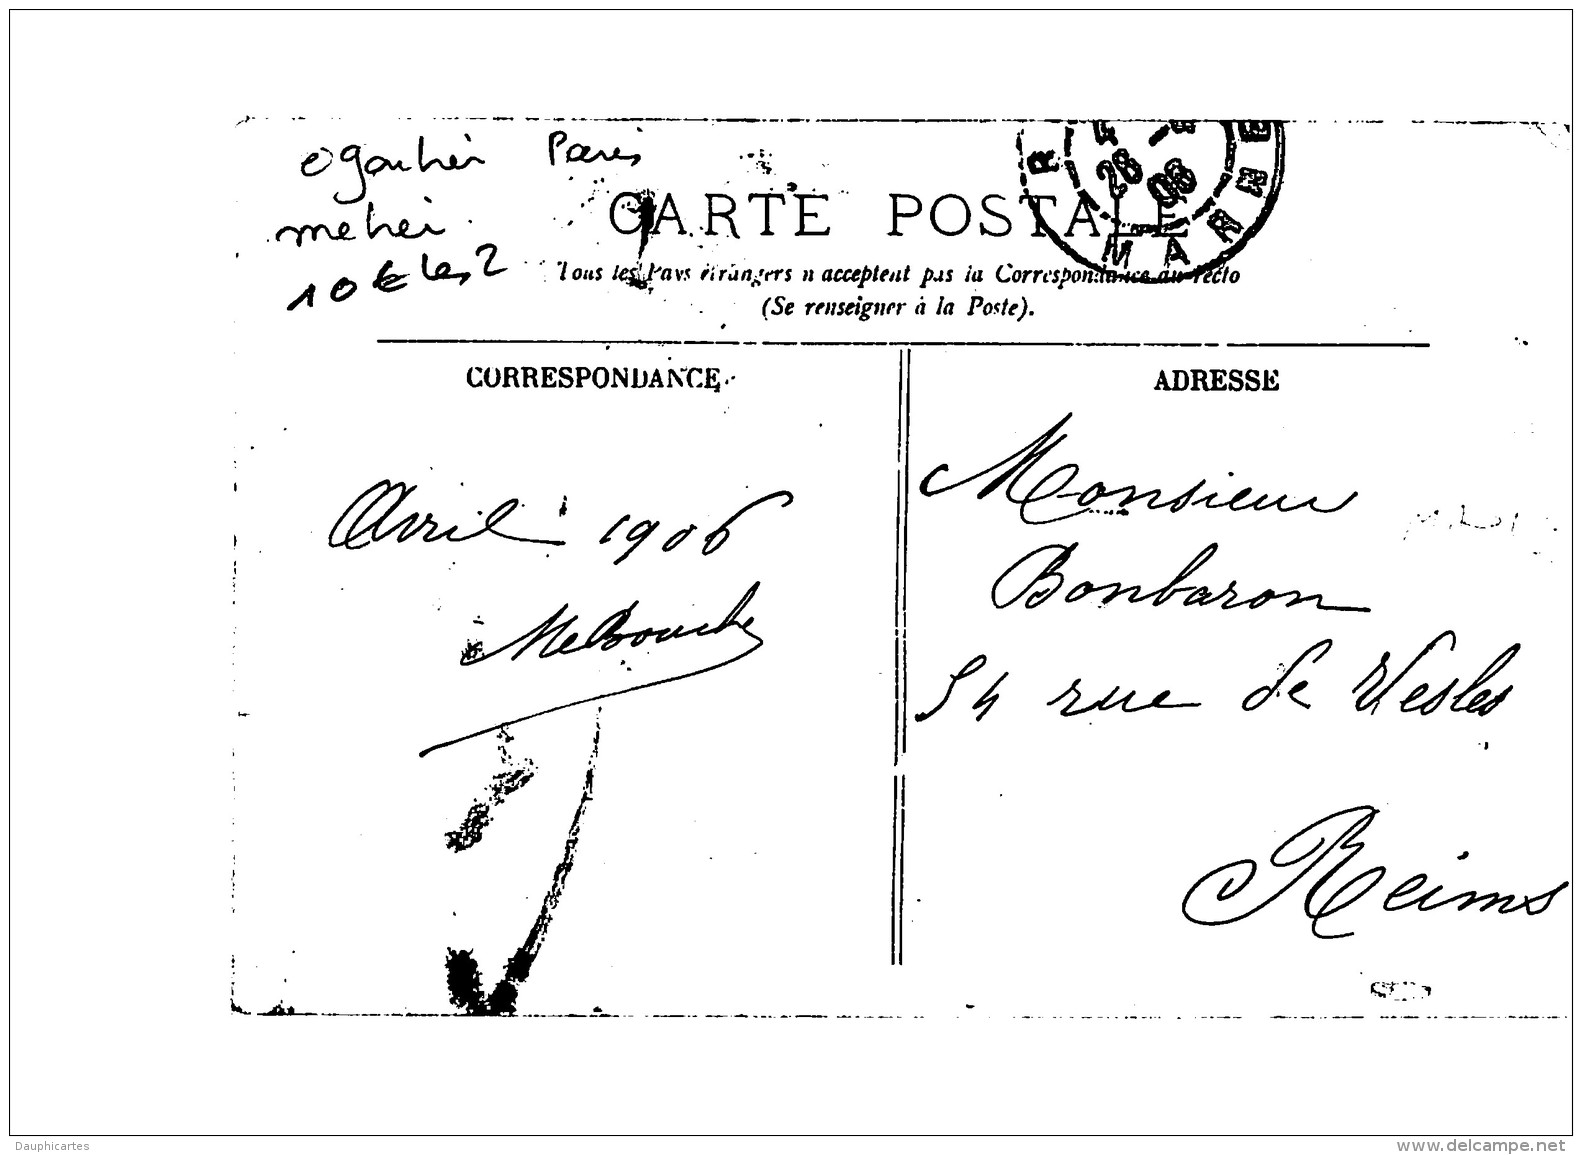 Paris
10 € les 2
CARTE POSTALE
Tous les Pays étrangers n'acceptent pas la Correspondance au recto
(Se renseigner à la Poste).
CORRESPONDANCE
ADRESSE
Avril 1906
Monsieur
Bonbaron
54 rue de Vesles
Reims
28
06
MARNE
Dauphicartes
www.delcampe.net